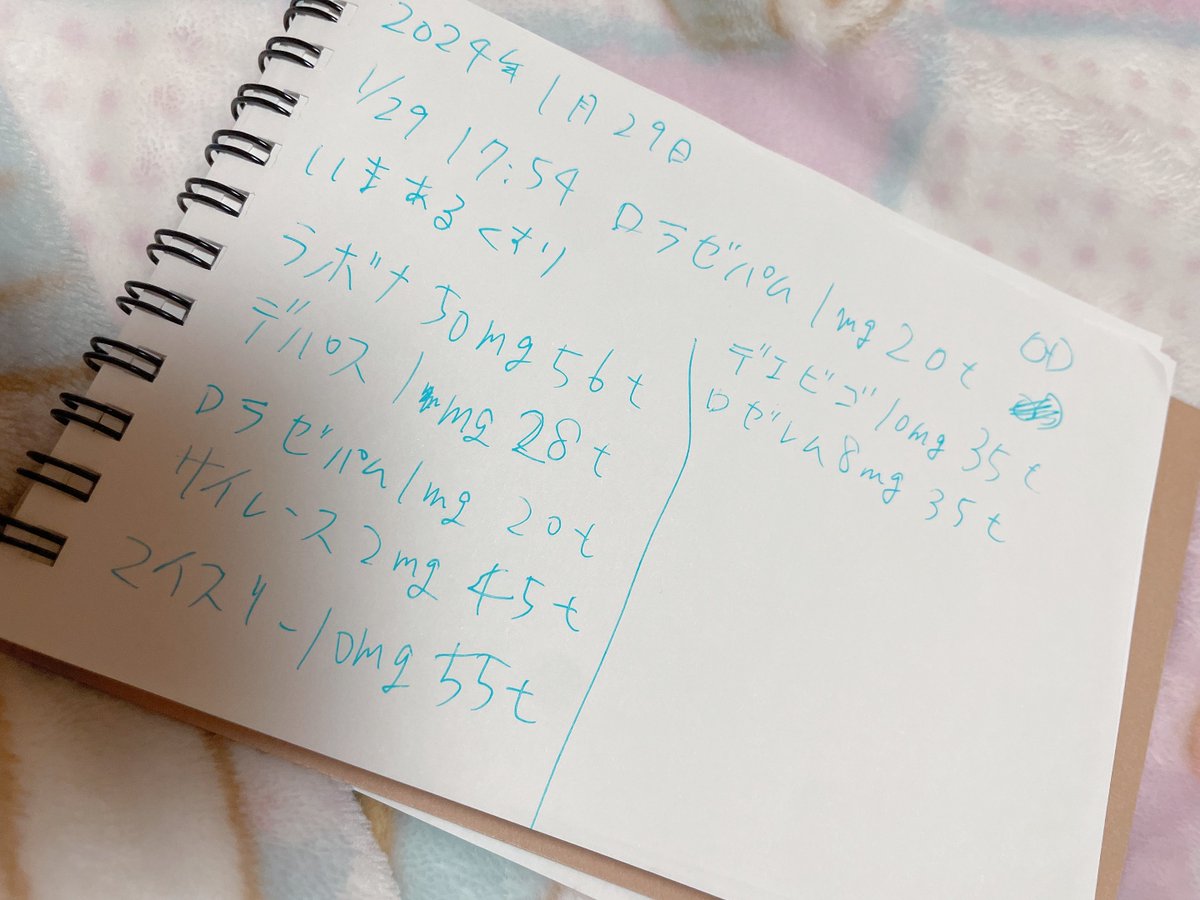 2024年1月29日
1/29 17:54
いまあるくすり
ラボナ 50mg 56t
デパス 1mg 28t
ロラゼパム1mg 20t
サイレース2mg 45t
マイスリー10mg 55t
ロラゼパム1mg 20t OD
デエビゴ10mg 35t
ロゼレム8mg 35t